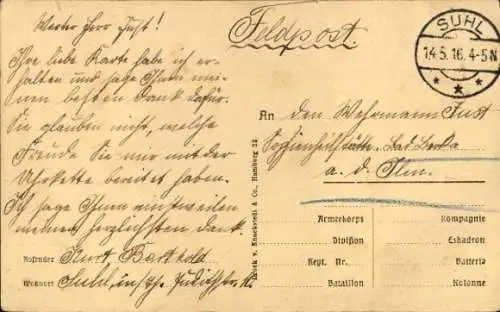 Werter Herr Just!
Ihre liebe Karte habe ich er-
halten und sage Ihnen mei-
nen besten Dank dafür.
Sie glauben nicht, welche
Freude Sie mir mit der
Uhrkette bereitet haben.
Ich sage Ihnen einstweilen
meinen herzlichsten Dank.
Absender Kurt Berthold
Wohnort Suhl, in/Th.
Feldpost.
SUHL
14.5.16. 4-5N
An den Wehrmann Just
Sophienheilstätte, Bad Berka
a. d. Ilm.
Druck v. Knackstedt & Co., Hamburg 22.
Armeekorps Kompagnie
Division Eskadron
Regt. Nr. Batterie
Bataillon Kolonne